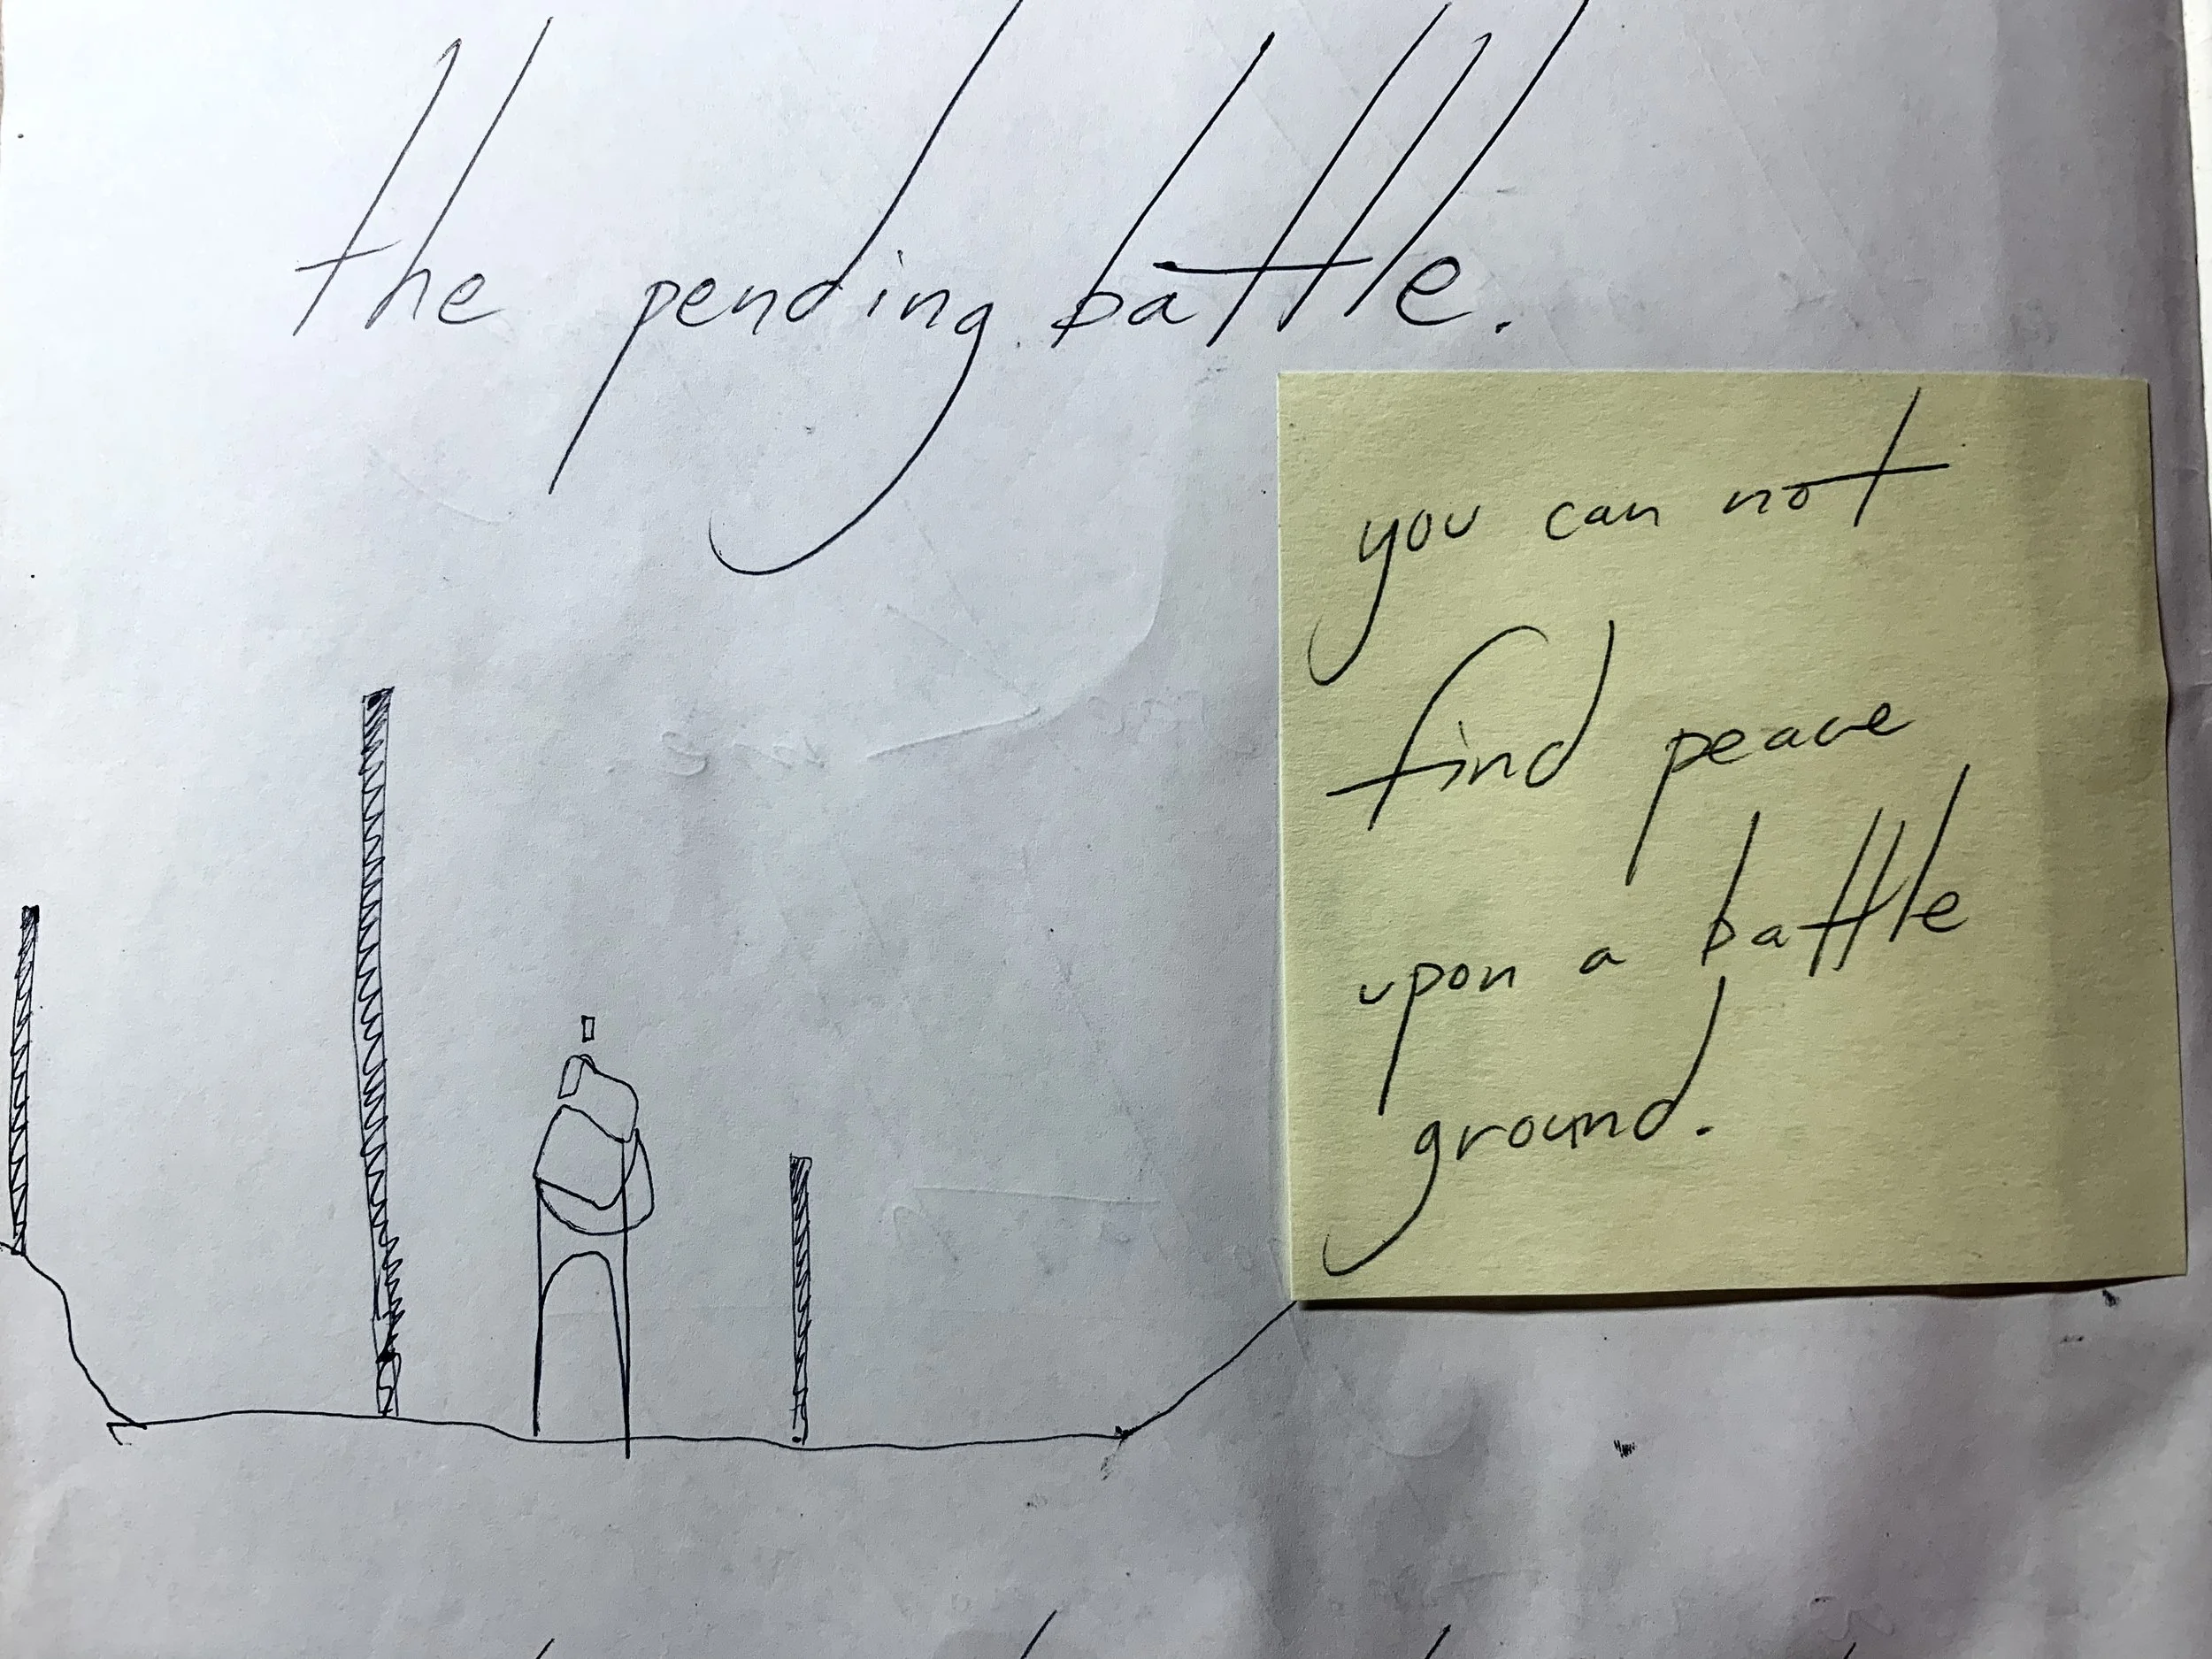 the pending battle.
you can not
find peace
upon a battle
ground.